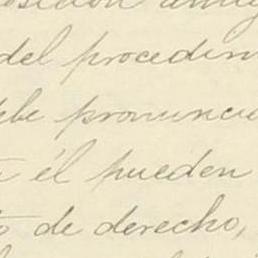 del procedim
ebe pronuncia
él pueden
to de derecho,